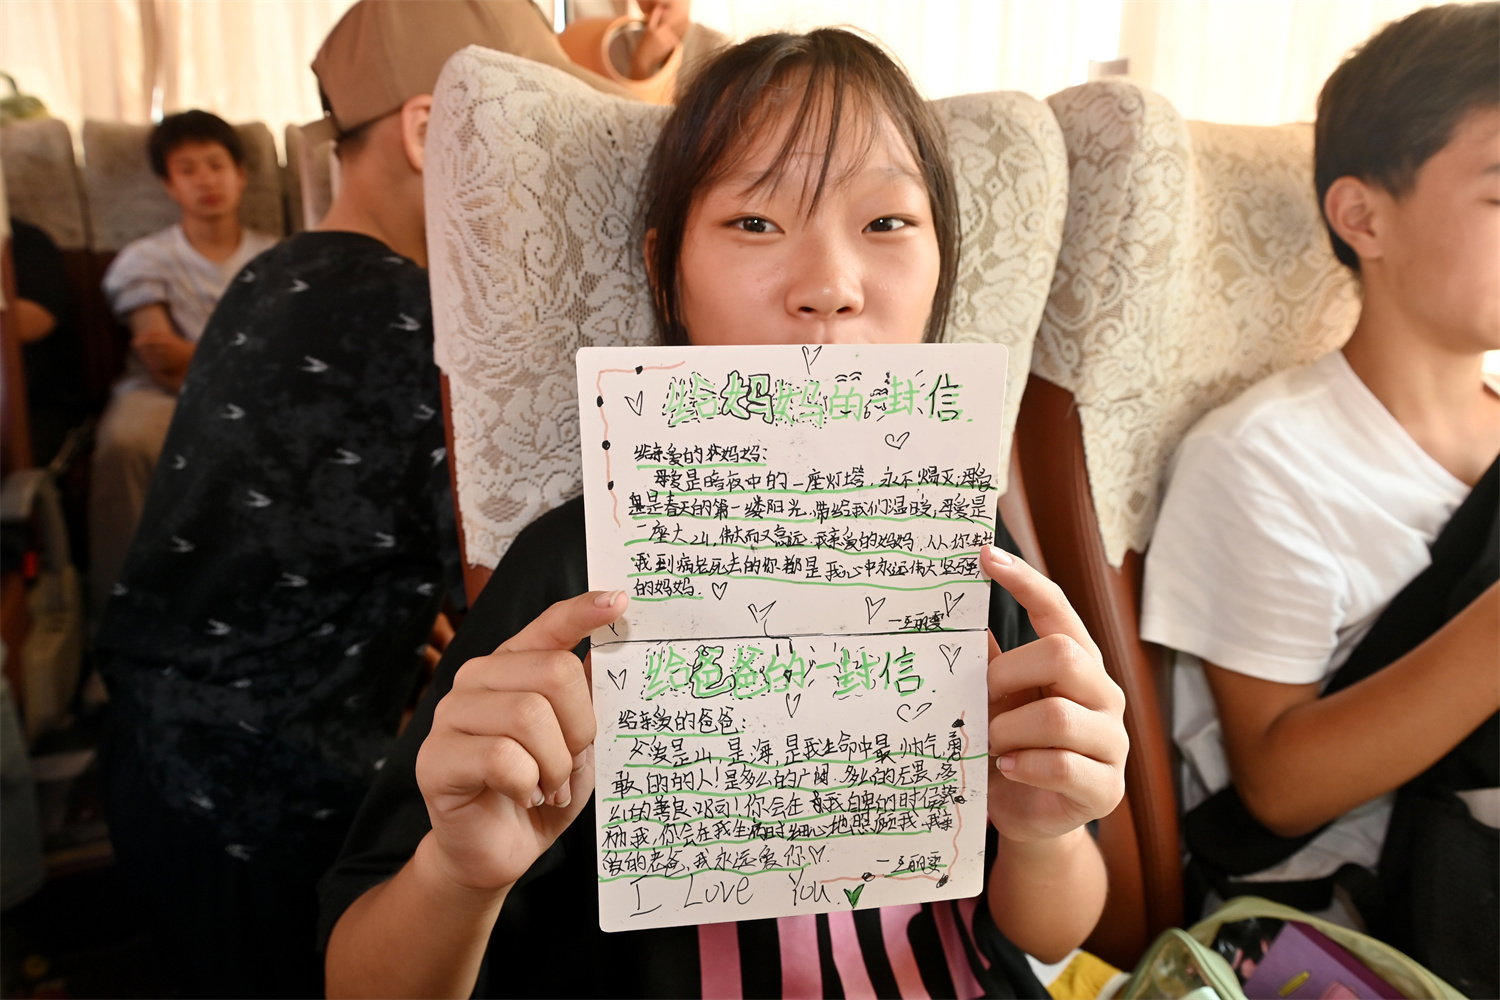 给妈妈的一封信.
给亲爱的妈妈:
母爱是暗夜中的一座灯塔，永不熄灭;母爱
是春天的第一缕阳光.带给我们温暖,母爱是
一座大山,伟大而又高远.我亲爱的妈妈.从你
我到病老死去的你都是我心中永远伟大坚强
的妈妈.
给爸爸的一封信.
给亲爱的爸爸:
父爱是山,是海,是我生命中最帅气,勇
敢的的人!是多么的广阔.多么的无畏,多
么的善良呀!你会在我自卑的时候鼓
我,你会在我生病时细心地照顾我.我亲
爱的老爸,我永远爱你
I Love You.